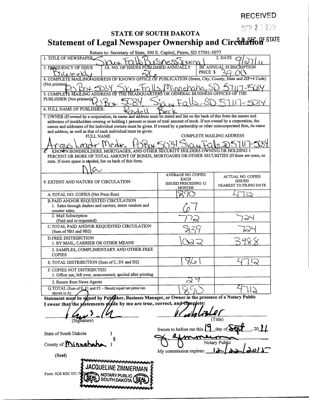 RECEIVED
STATE OF SOUTH DAKOTA
Statement of Legal Newspaper Ownership and Circulation
Return to: Secretary of State, 500 E. Capitol, Pierre, SD 57501-5077
1. TITLE OF NEWSPAPER Sioux Falls Business Journal 2. DATE
3. FREQUENCY OF ISSUE 3A. NO. OF ISSUES PUBLISHED ANNUALLY 3B. ANNUAL SUBSCRIPTION
Biweekly PRICE $
4. COMPLETE MAILING ADDRESS OF KNOWN OFFICE OF PUBLICATION (Street, City, County, State and ZIP+4 Code)
(Not printers) PO Box 5034 Sioux Falls, Minnehaha, SD 57117-5034
5. COMPLETE MAILING ADDRESS OF THE HEADQUARTERS OR GENERAL BUSINESS OFFICES OF THE
PUBLISHER (Not printer) PO Box 5034 Sioux Falls, SD 57117-5034
6. FULL NAME OF PUBLISHER: Randell Beck
7. OWNER (If owned by a corporation, its name and address must be stated and also on the back of this form the names and
addresses of stockholders owning or holding 1 percent or more of total amount of stock. If not owned by a corporation, the
names and addresses of the individual owners must be given. If owned by a partnership or other unincorporated firm, its name
and address, as well as that of each individual must be given.
FULL NAME COMPLETE MAILING ADDRESS
Argus Leader Media, PO Box 5034 Sioux Falls SD 57117-5034
8. KNOWN BONDHOLDERS, MORTGAGEES, AND OTHER SECURITY HOLDERS OWNING OR HOLDING 1
PERCENT OR MORE OF TOTAL AMOUNT OF BONDS, MORTGAGES OR OTHER SECURITIES (If there are none, so
state. If more space is needed, list on back of this form.
N/a
9. EXTENT AND NATURE OF CIRCULATION
AVERAGE NO. COPIES EACH ISSUED PRECEDING 12 MONTHS
ACTUAL NO. COPIES ISSUED NEAREST TO FILING DATE
A. TOTAL NO. COPIES (Net Press Run) 1890 4712
B. PAID AND/OR REQUESTED CIRCULATION
1. Sales through dealers and carriers, street vendors and
counter sales. 67
2. Mail Subscription
(Paid and or requested) 772 724
C. TOTAL PAID AND/OR REQUESTED CIRCULATION
(Sum of 9B1 and 9B2) 839 724
D. FREE DISTRIBUTION
1. BY MAIL, CARRIER OR OTHER MEANS 1022 3988
2. SAMPLES, COMPLIMENTARY AND OTHER FREE
COPIES
E. TOTAL DISTRIBUTION (Sum of C, D1 and D2) 1861 4712
F. COPIES NOT DISTRIBUTED
1. Office use, left over, unaccounted, spoiled after printing
2. Return from News Agents 29
G. TOTAL (Sum of E, F1 and F2 - Should equal net press run
shown in A) 1890 4712
Statement must be signed by Publisher, Business Manager, or Owner in the presence of a Notary Public
I swear that the statements made by me are true, correct, and complete:
(Signature) (Title)
State of South Dakota )
Sworn to before me this 19 day of Sept, 2011
County of Minnehaha )
Notary Public
(Seal)
My commission expires:
JACQUELINE ZIMMERMAN
NOTARY PUBLIC
SOUTH DAKOTA
SEAL
SEAL